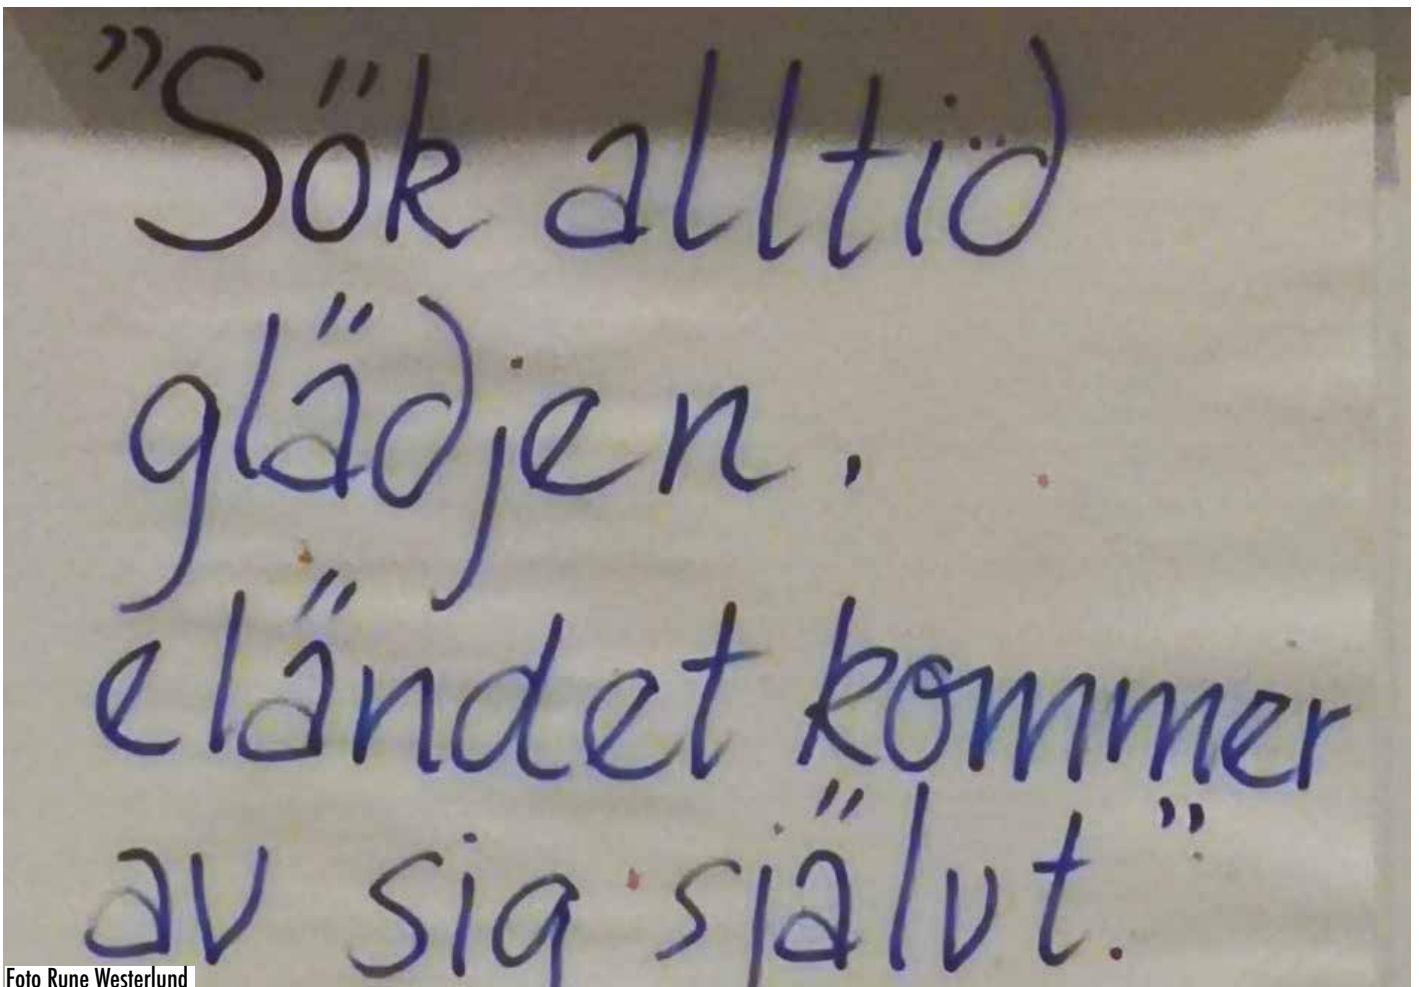 ”Sök alltid
glädjen.
eländet kommer
av sig självt.”
Foto Rune Westerlund